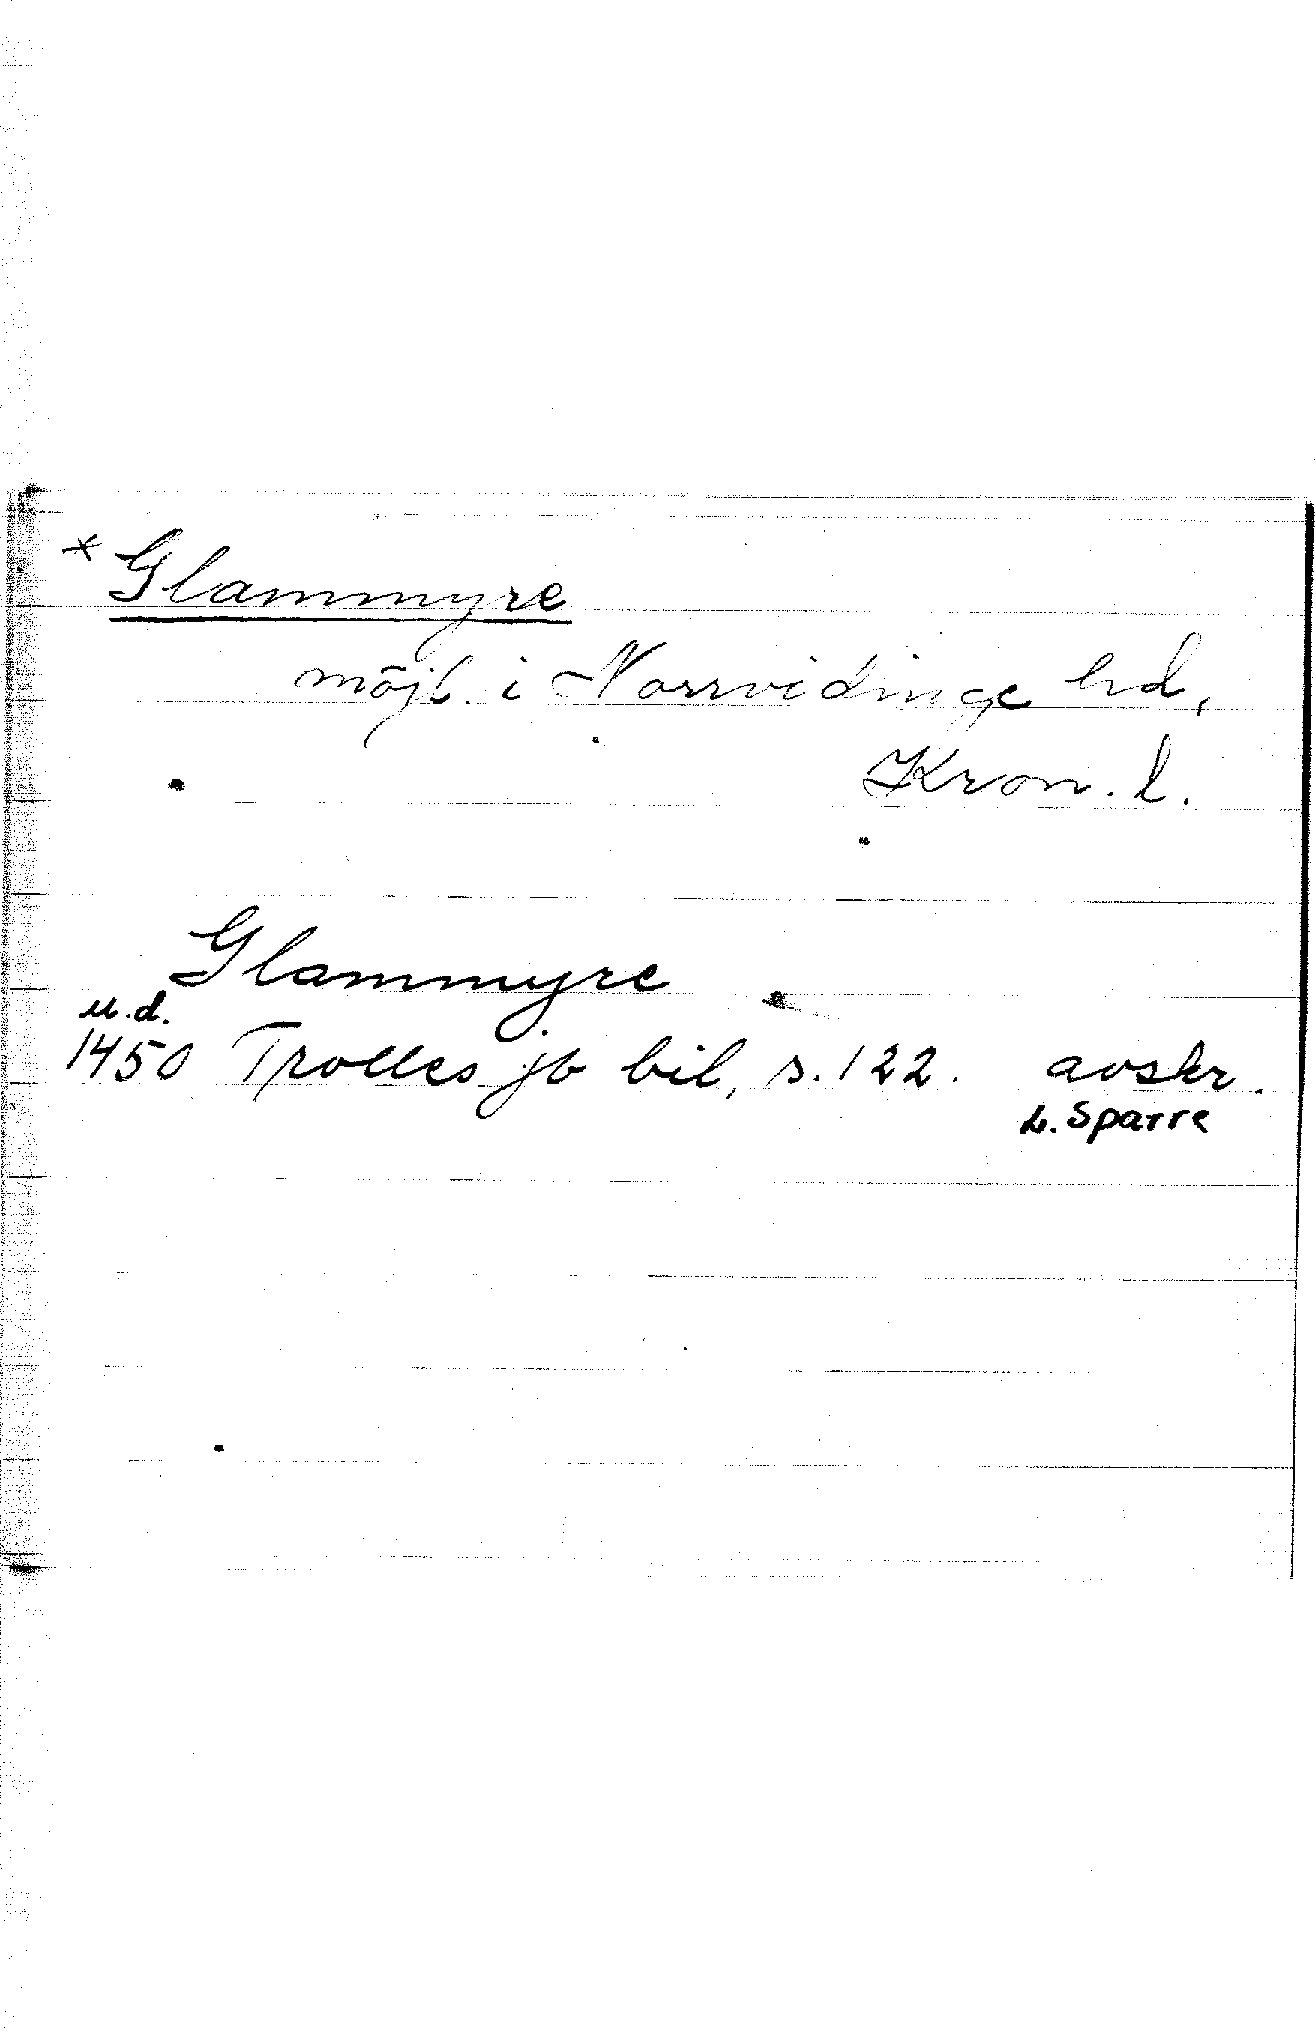 *Glammyre
möjl. i Norrvidinge hd,
Kron. l.
Glammyre
u.d.
1450 Trolles jb bil, s. 122. avskr.
L. Sparre